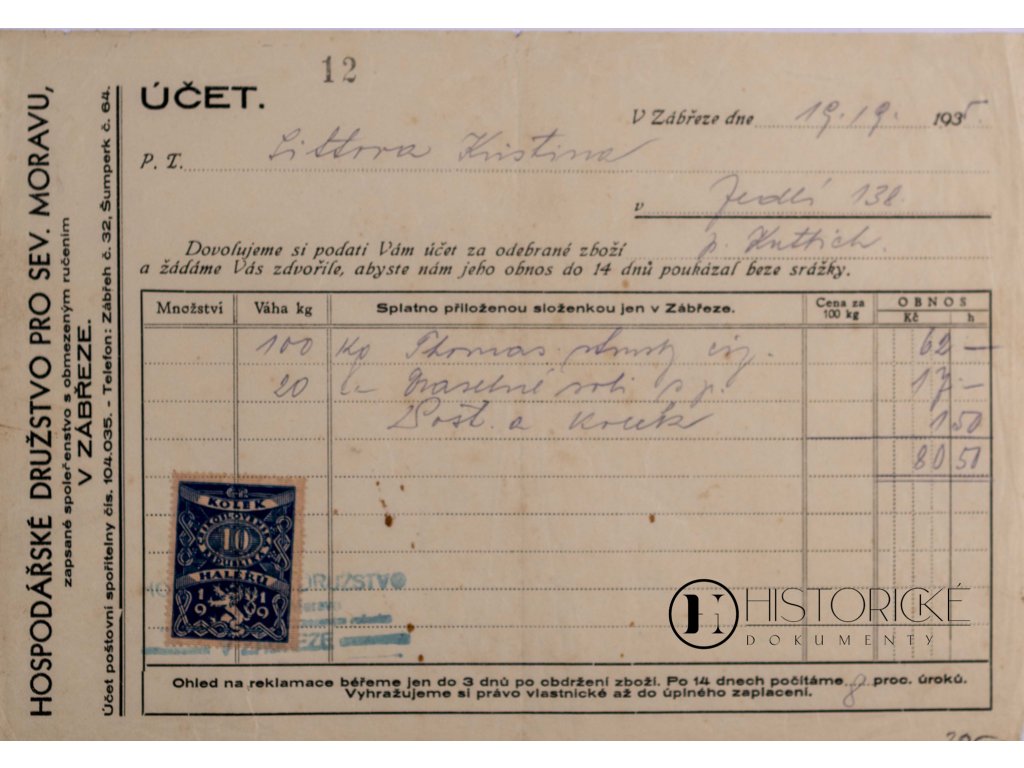 HOSPODÁŘSKÉ DRUŽSTVO PRO SEV. MORAVU,
zapsané společenstvo s obmezeným ručením
V ZÁBŘEZE.
Účet poštovní spořitelny čís. 104.035. - Telefon: Zábřeh č. 32, Šumperk č. 64.
12
ÚČET.
V Zábřeze dne 19. 19. 1935.
P. T. Littova Kristina
v Jedlí 138.
p.
Dovolujeme si podati Vám účet za odebrané zboží
a žádáme Vás zdvořile, abyste nám jeho obnos do 14 dnů poukázal beze srážky.
Množství Váha kg Splatno přiloženou složenkou jen v Zábřeze. Cena za 100 kg OBNOS Kč h
100 Kg Thomas 62 —
20 soli 17 —
Pošt. a kolek 1 50
80 50
KOLEK
10
HALÉŘŮ
1919
DRUŽSTVO
HISTORICKÉ
DOKUMENTY
Ohled na reklamace béřeme jen do 3 dnů po obdržení zboží. Po 14 dnech počítáme 8 proc. úroků.
Vyhražujeme si právo vlastnické až do úplného zaplacení.